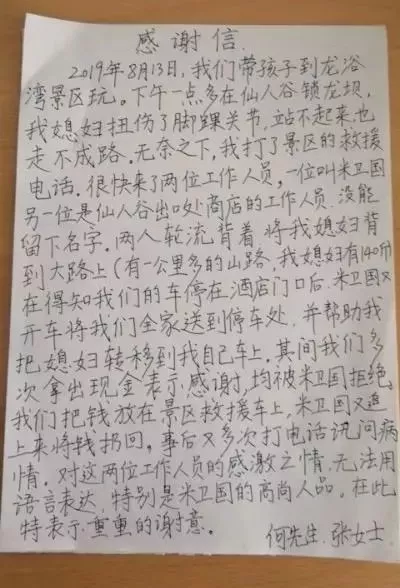 感谢信
2019年8月13日,我们带孩子到龙浴
湾景区玩。下午一点多在仙人谷锁龙坝,
我媳妇扭伤了脚踝关节,站不起来,也
走不成路。无奈之下,我打了景区的救援
电话。很快来了两位工作人员,一位叫米卫国
另一位是仙人谷出口处商店的工作人员,没能
留下名字。两人轮流背着将我媳妇背
到大路上(有一公里多的山路,我媳妇有140斤)
在得知我们的车停在酒店门口后,米卫国又
开车将我们全家送到停车处,并帮助我
把媳妇转移到我自己车上。其间我们多
次拿出现金表示感谢,均被米卫国拒绝。
我们把钱放在景区救援车上,米卫国又追
上来将钱扔回。事后又多次打电话讯问病
情。对这两位工作人员的感激之情,无法用
语言表达,特别是米卫国的高尚人品,在此
特表示重重的谢意。
何先生、张女士